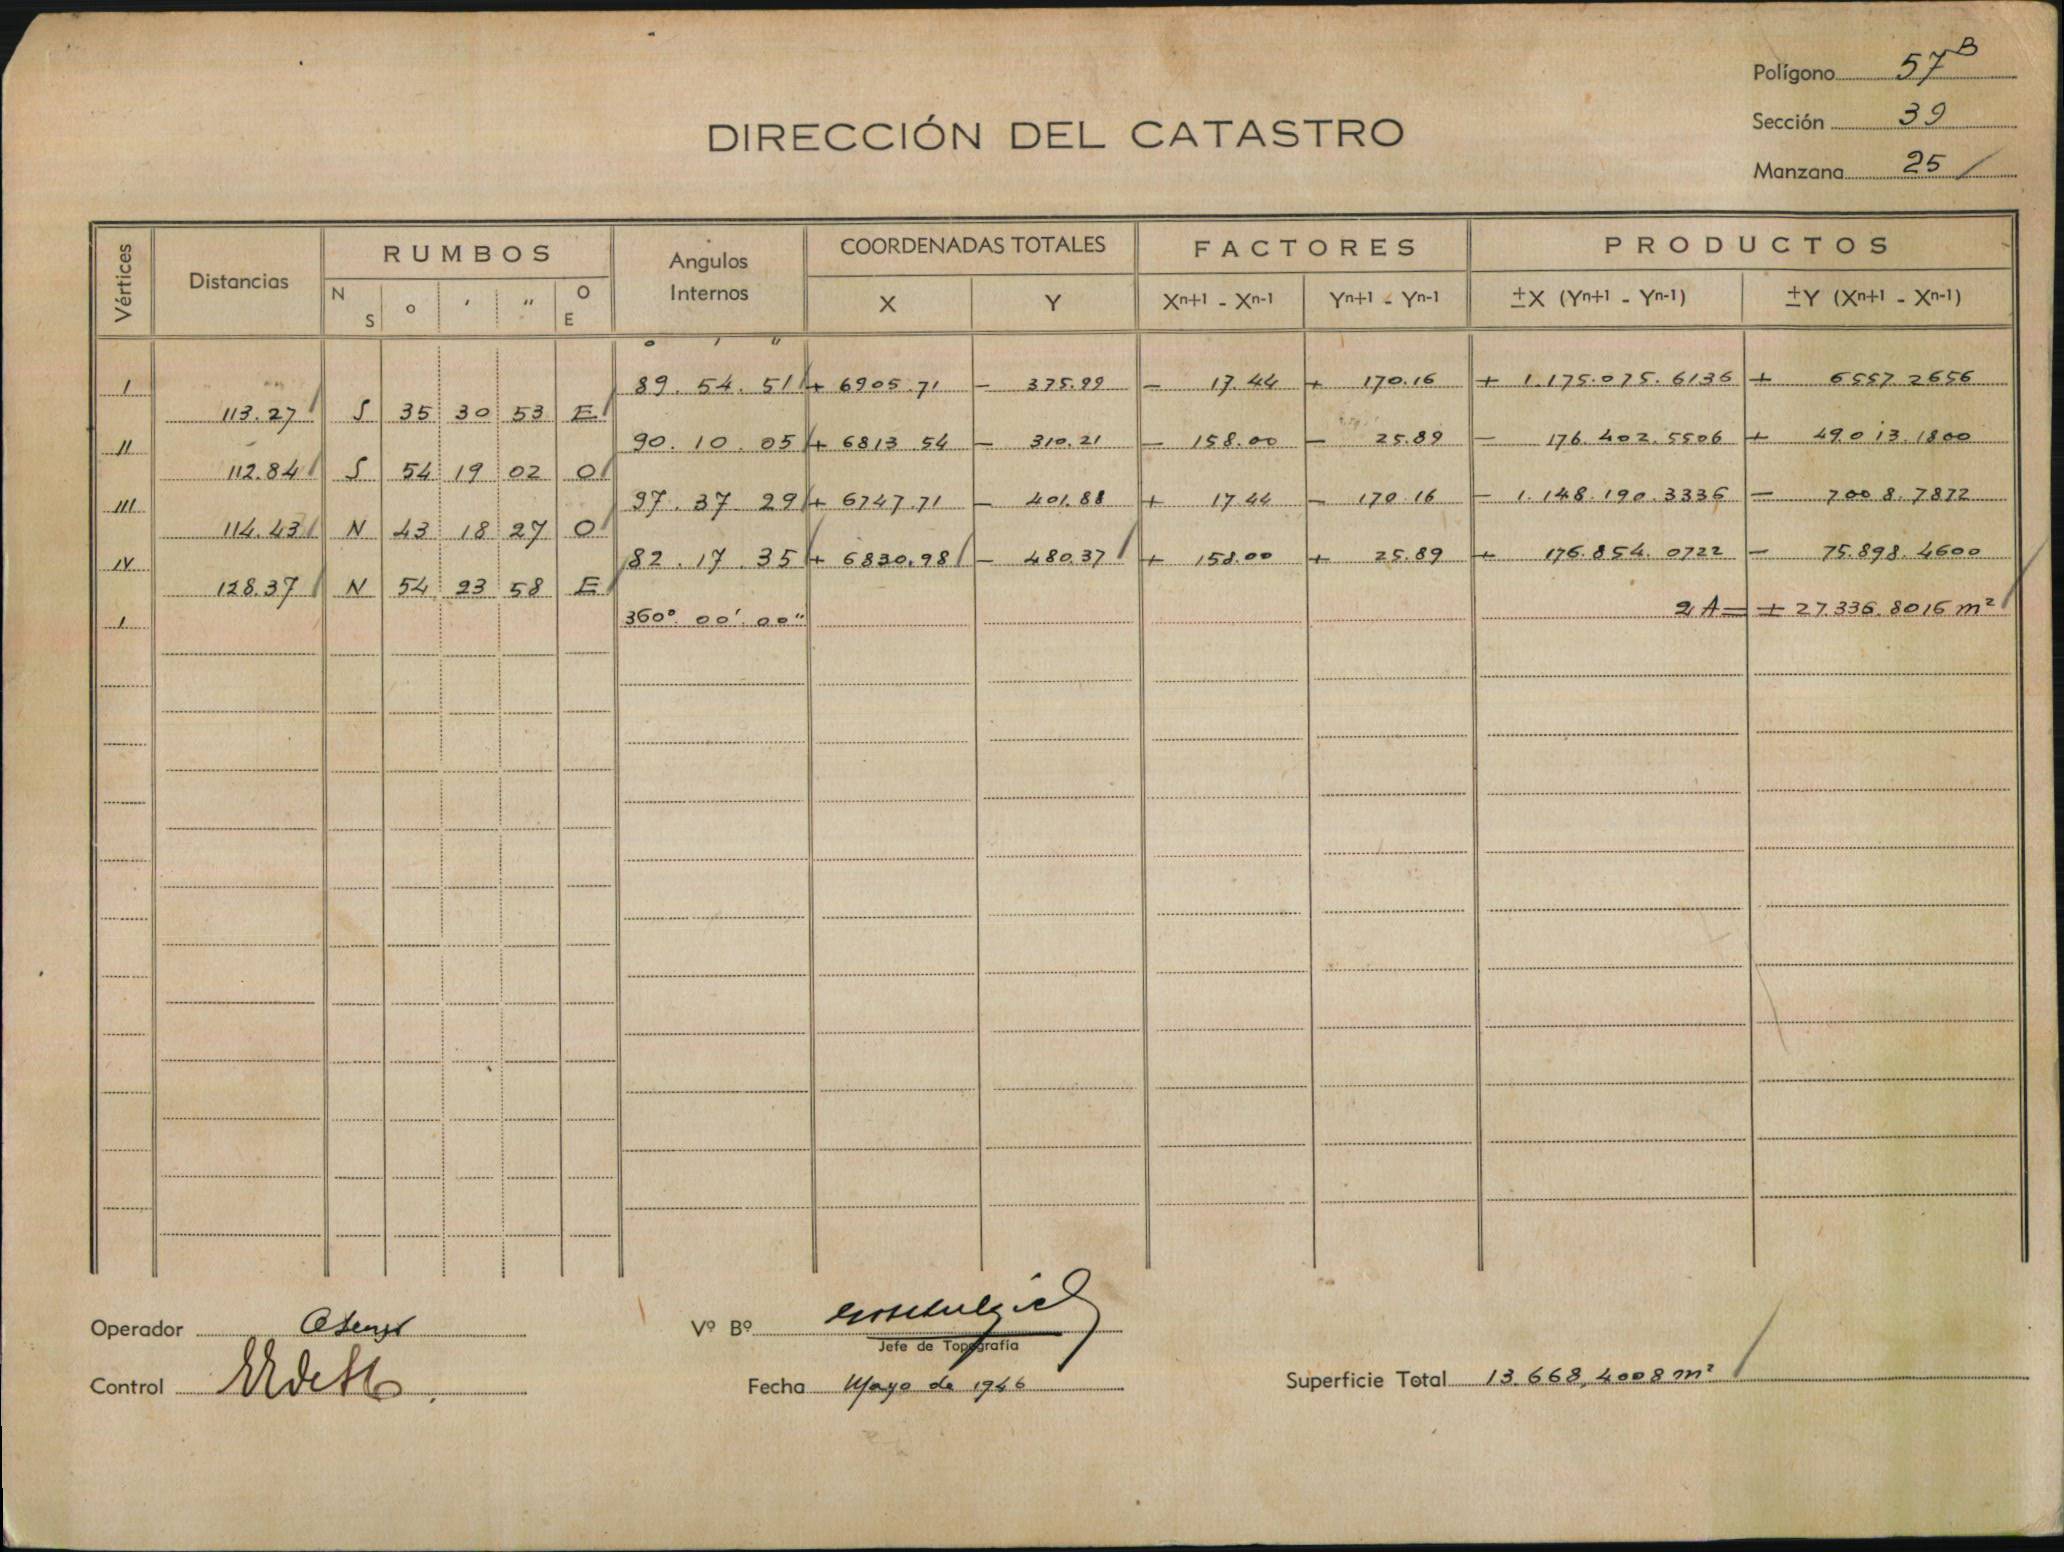 Polígono 57 B
Sección 39
Manzana 25
DIRECCIÓN DEL CATASTRO
Vértices Distancias RUMBOS Angulos Internos COORDENADAS TOTALES FACTORES PRODUCTOS
N S o ' " O E X Y Xn+1 - Xn-1 Yn+1 - Yn-1 ±X (Yn+1 - Yn-1) ±Y (Xn+1 - Xn-1)
o ' "
I 89. 54. 51 + 6905.71 - 375.99 - 17.44 + 170.16 + 1.175.075.6136 + 6557.2656
113.27 S 35 30 53 E
II 90. 10. 05 + 6813.54 - 310.21 - 158.00 - 25.89 - 176.402.5506 + 49.013.1800
112.84 S 54 19 02 O
III 97. 37 29 + 6747.71 - 401.88 + 17.44 - 170.16 - 1.148.190.3336 - 7008.7872
114.43 N 43 18 27 O
IV 82. 17. 35 + 6830.98 - 480.37 + 158.00 + 25.89 + 176.854.0722 - 75.898.4600
128.37 N 54 23 58 E
I 360° 00' 00" 2A = + 27.336.8016 m²
Operador
Vº Bº
Jefe de Topografía
Control
Fecha Mayo de 1946
Superficie Total 13.668,4008 m²